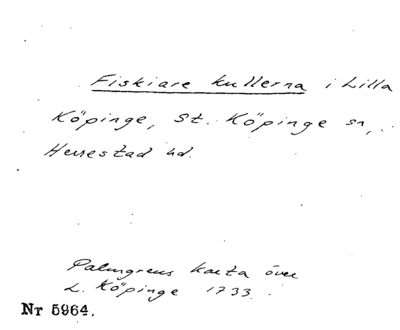 Fiskiare kullerna i Lilla
Köpinge, St. Köpinge sn,
Herrestad hd.
Palmgrens karta över
L. Köpinge 1733.
Nr 5964.